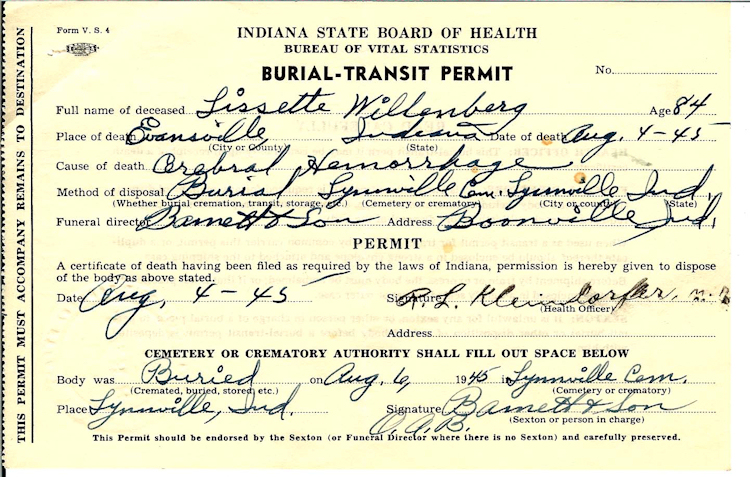 Form V. S. 4
INDIANA STATE BOARD OF HEALTH
BUREAU OF VITAL STATISTICS
BURIAL-TRANSIT PERMIT
No.
Full name of deceased Lissette Willenberg Age 84
Place of death Evansville Indiana Date of death Aug. 4-45
(City or County) (State)
Cause of death Cerebral Hemorrhage
Method of disposal Burial Lynnville Cem. Lynnville Ind.
(Whether burial cremation, transit, storage, etc.) (Cemetery or crematory) (City or county) (State)
Funeral director Barnett & Son Address Boonville Ind.
PERMIT
A certificate of death having been filed as required by the laws of Indiana, permission is hereby given to dispose
of the body as above stated.
Date Aug, 4-45 Signature R. L. Kleindorfer, M.D
(Health Officer)
Address
CEMETERY OR CREMATORY AUTHORITY SHALL FILL OUT SPACE BELOW
Body was Buried on Aug 6, 1945 in Lynnville Cem.
(Cremated, buried, stored etc.) (Cemetery or crematory)
Place Lynnville, Ind. Signature Barnett & Son
(Sexton or person in charge)
This Permit should be endorsed by the Sexton (or Funeral Director where there is no Sexton) and carefully preserved.
THIS PERMIT MUST ACCOMPANY REMAINS TO DESTINATION